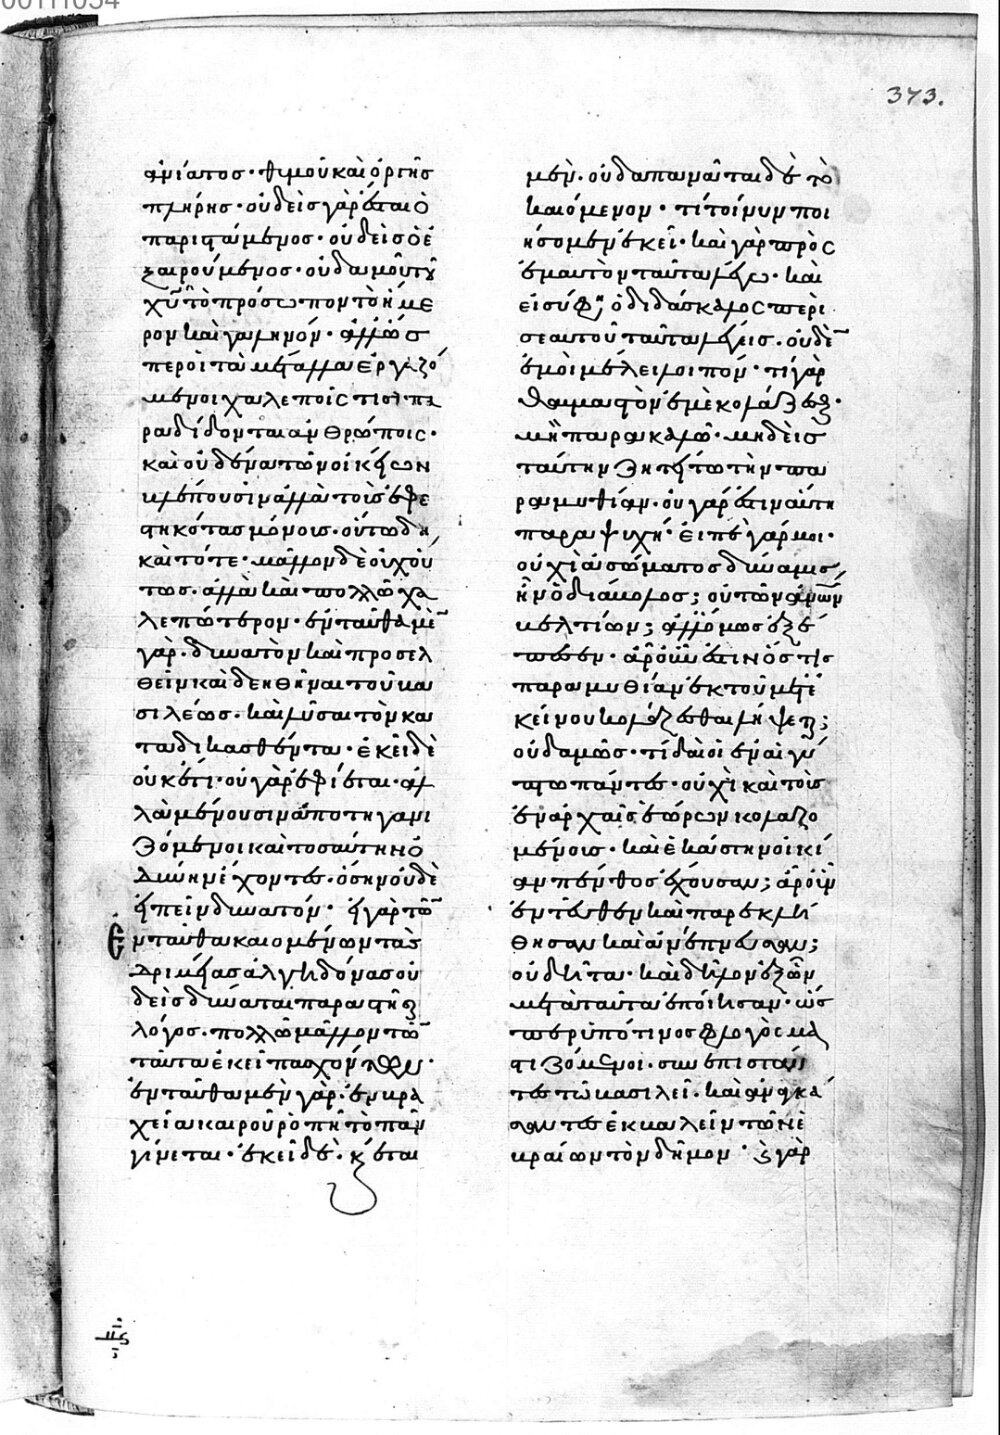 373.
ἀνίατος· θυμοῦ καὶ ὀργῆς
πλήρης· οὐδεὶς γὰρ ἔσται ὁ
παριστάμενος· οὐδεὶς ὁ ἐ
ξαιρούμενος· οὐδαμοῦ τοῦ
χ̅υ̅ τὸ πρόσωπον τὸ ἥμε
ρον καὶ γαληνόν· ἀλλ' ὥσ
περ οἱ τὰ μέταλλα ἐργαζό
μενοι χαλεποῖς τισι πα
ραδίδονται ἀνθρώποις·
καὶ οὐδένα τῶν οἰκείων
βλέπουσιν ἀλλὰ τοὺς ἐφε
στηκότας μόνους· οὕτω δὴ
καὶ τότε· μᾶλλον δὲ οὐχ οὕ
τως· ἀλλὰ καὶ πολλῷ χα
λεπώτερον· ἐνταῦθα μὲν
γὰρ· δυνατὸν καὶ προσελ
θεῖν καὶ δεηθῆναι τοῦ βα
σιλέως· καὶ λῦσαι τὸν κα
ταδικασθέντα· ἐκεῖ δὲ
οὐκέτι· οὐ γὰρ ἐφίεται· ἀλ
λὰ μένουσιν ἀποτηγανι
ζόμενοι καὶ τοσαύτην ὀ
δύνην ἔχοντες· ὅσην οὐδὲ
εἰπεῖν δυνατόν· εἰ γὰρ τῶν
ἐνταῦθα καιομένων τὰς
δριμείας ἀλγηδόνας οὐ
δεὶς δύναται παραστῆσαι
λόγος· πολλῷ μᾶλλον τῶν
ταῦτα ἐκεῖ πασχόντων·
ἐνταῦθα μὲν γὰρ· ἐν βρα
χεῖα καιροῦ ῥοπῇ τὸ πᾶν
γίνεται· ἐκεῖ δὲ· καίεται
μὲν· οὐ δαπανᾶται δὲ τὸ
καιόμενον· τί τοίνυν ποι
ήσομεν ἐκεῖ· καὶ γὰρ πρὸς
ἐμαυτὸν ταῦτα λέγω· καὶ
εἰ σύ φησιν ὁ διδάσκαλος περὶ
σεαυτοῦ ταῦτα λέγεις· οὐδὲν
ἐμοὶ μέλει λοιπόν· τί γὰρ
θαυμαστὸν ἐμὲ κολάζεσθαι·
μὴ παρακαλῶ· μηδεὶς
ταύτην ζητείτω τὴν πα
ραμυθίαν· οὐ γάρ ἐστιν αὕτη
παραψυχή· εἰπὲ γάρ μοι·
οὐχὶ ἀσώματος δύναμις
ἦν ὁ διάβολος; οὐ τῶν ἀ̅ν̅ω̅ν̅
βελτίων; ἀλλ' ὅμως ἐξέ
πεσεν· ἆρ' οὖν ἐστιν ὅστις
παραμυθίαν ἐκ τοῦ μετ' ἐ
κείνου κολάζεσθαι λήψεται;
οὐδαμῶς· τί δαὶ οἱ ἐν αἰγύ
πτω πάντες· οὐχὶ καὶ τοὺς
ἐν ἀρχαῖς ἑώρων κολαζο
μένους· καὶ ἑκάστην οἰκί
αν πένθος ἔχουσαν; ἆρ' οὖν
ἐντεῦθεν καὶ παρεκλή
θησαν καὶ ἀνέπνευσαν;
οὐ δῆτα· καὶ δῆλον ἐξ ὧν
μετὰ ταῦτα ἐποίησαν· ὡς
περ ὑπό τινος φλογὸς μα
στιζόμενοι· συνεπιστάν
τες τῶ βασιλεῖ· καὶ ἀναγκά
σαντες ἐκβαλεῖν τῶν ἑ
βραίων τὸν δῆμον· καὶ γὰρ